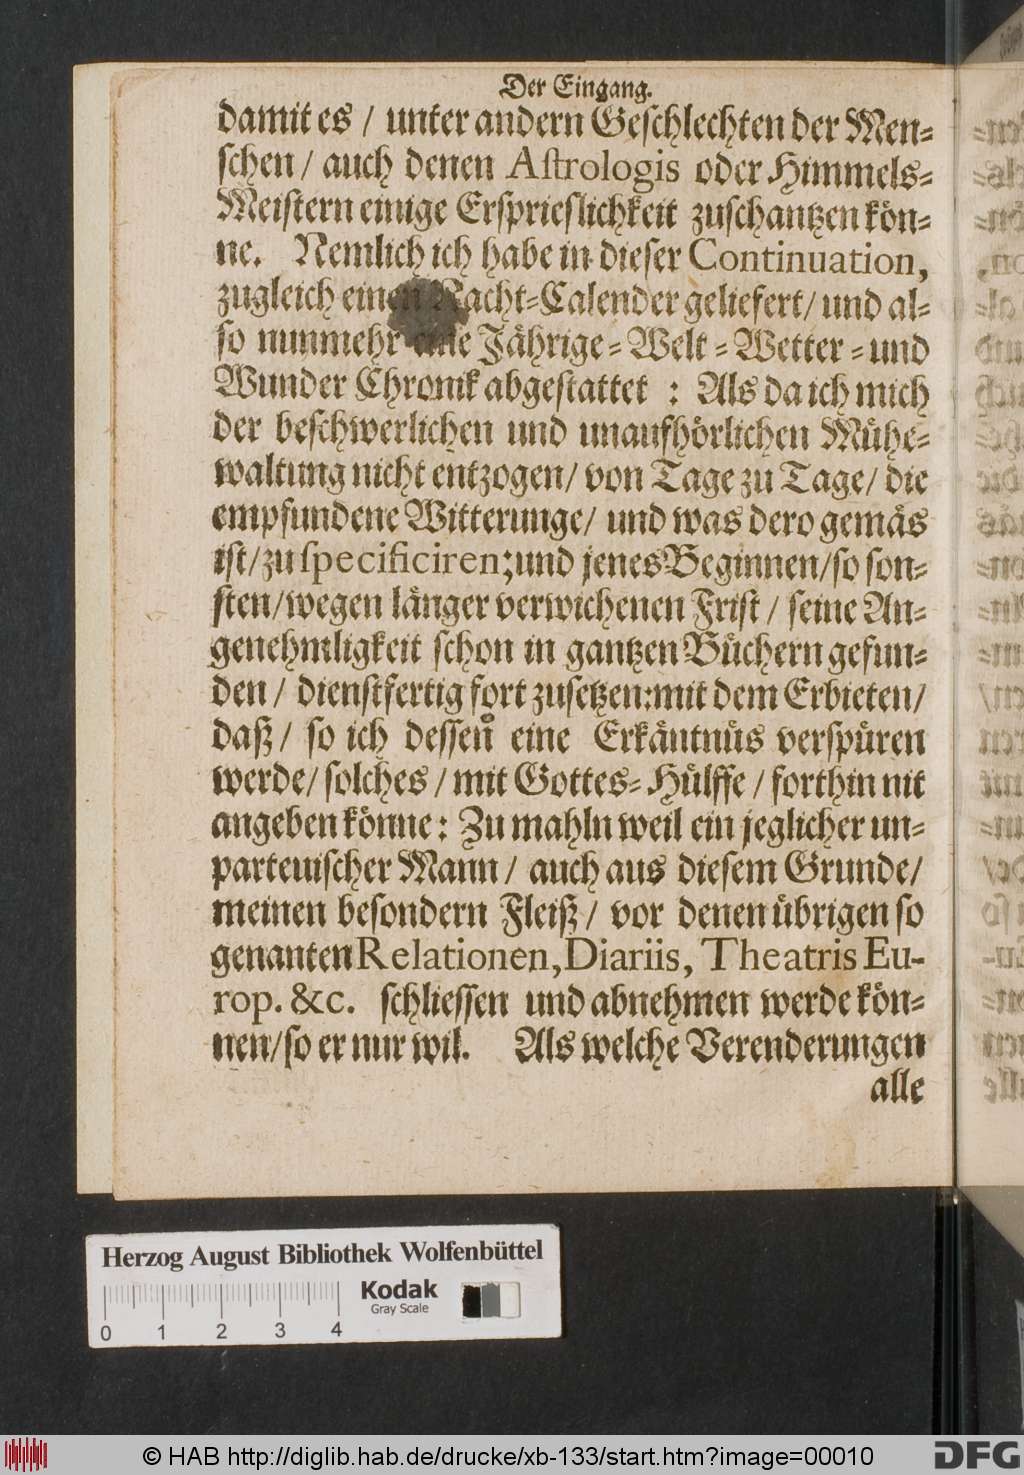 Der Eingang.
damit es / unter andern Geschlechten der Men=
schen / auch denen Astrologis oder Himmels=
Meistern einige Ersprieslichkeit zuschantzen kön=
ne. Nemlich ich habe in dieser Continuation,
zugleich einen Nacht=Calender geliefert / und al=
so nunmehr eine Jährige=Welt=Wetter=und
Wunder Chronik abgestattet : Als da ich mich
der beschwerlichen und unaufhörlichen Mühe=
waltung nicht entzogen / von Tage zu Tage / die
empfundene Witterunge / und was dero gemäs
ist / zu specificiren; und jenes Beginnen / so son=
sten / wegen länger verwichenen Frist / seine An=
genehmligkeit schon in gantzen Büchern gefun=
den / dienstfertig fort zusetzen: mit dem Erbieten /
daß / so ich dessen eine Erkäntnüs verspüren
werde / solches / mit Gottes=Hülffe / forthin nit
angeben könne: Zu mahln weil ein jeglicher un=
parteuischer Mann / auch aus diesem Grunde /
meinen besondern Fleiß / vor denen übrigen so
genanten Relationen, Diariis, Theatris Eu-
rop. &c. schliessen und abnehmen werde kön=
nen / so er nur wil. Als welche Verenderungen
alle
Herzog August Bibliothek Wolfenbüttel
Kodak
Gray Scale
0 1 2 3 4
© HAB http://diglib.hab.de/drucke/xb-133/start.htm?image=00010
DFG